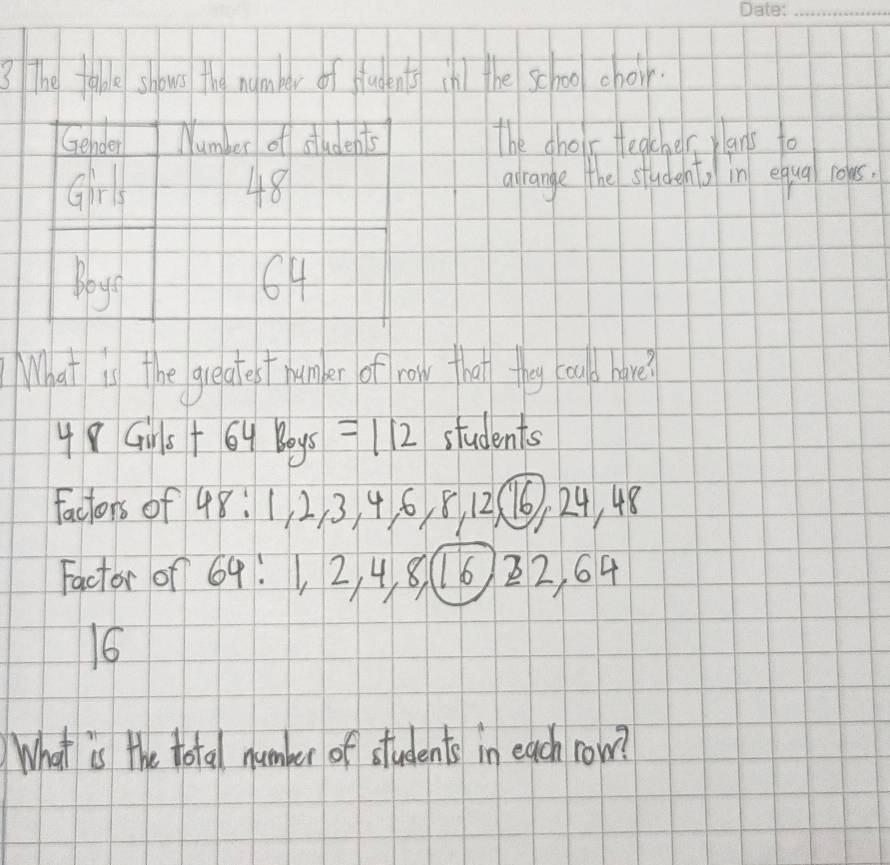 Date: ................
3 The table shows the number of students in the school choir.
Gender Number of students
Girls 48
Boys 64
The choir teacher plans to
arrange the students in equal rows.
What is the greatest number of row that they could have?
48 Girls + 64 Boys = 112 students
Factors of 48: 1, 2, 3, 4, 6, 8, 12, 16, 24, 48
Factor of 64: 1, 2, 4, 8, 16 32, 64
16
What is the total number of students in each row?